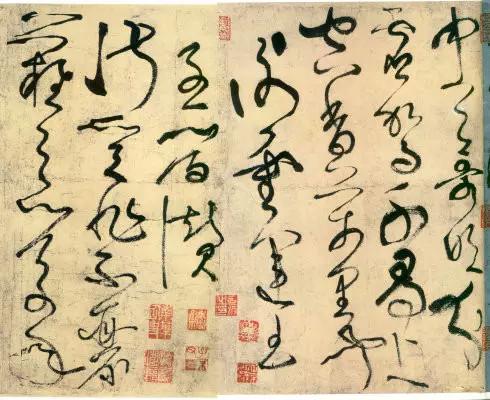 中天歌吹分
靈駕千尋上
空香萬里聞
謝靈運王
子晉贊
淑質非不麗
難以之百年